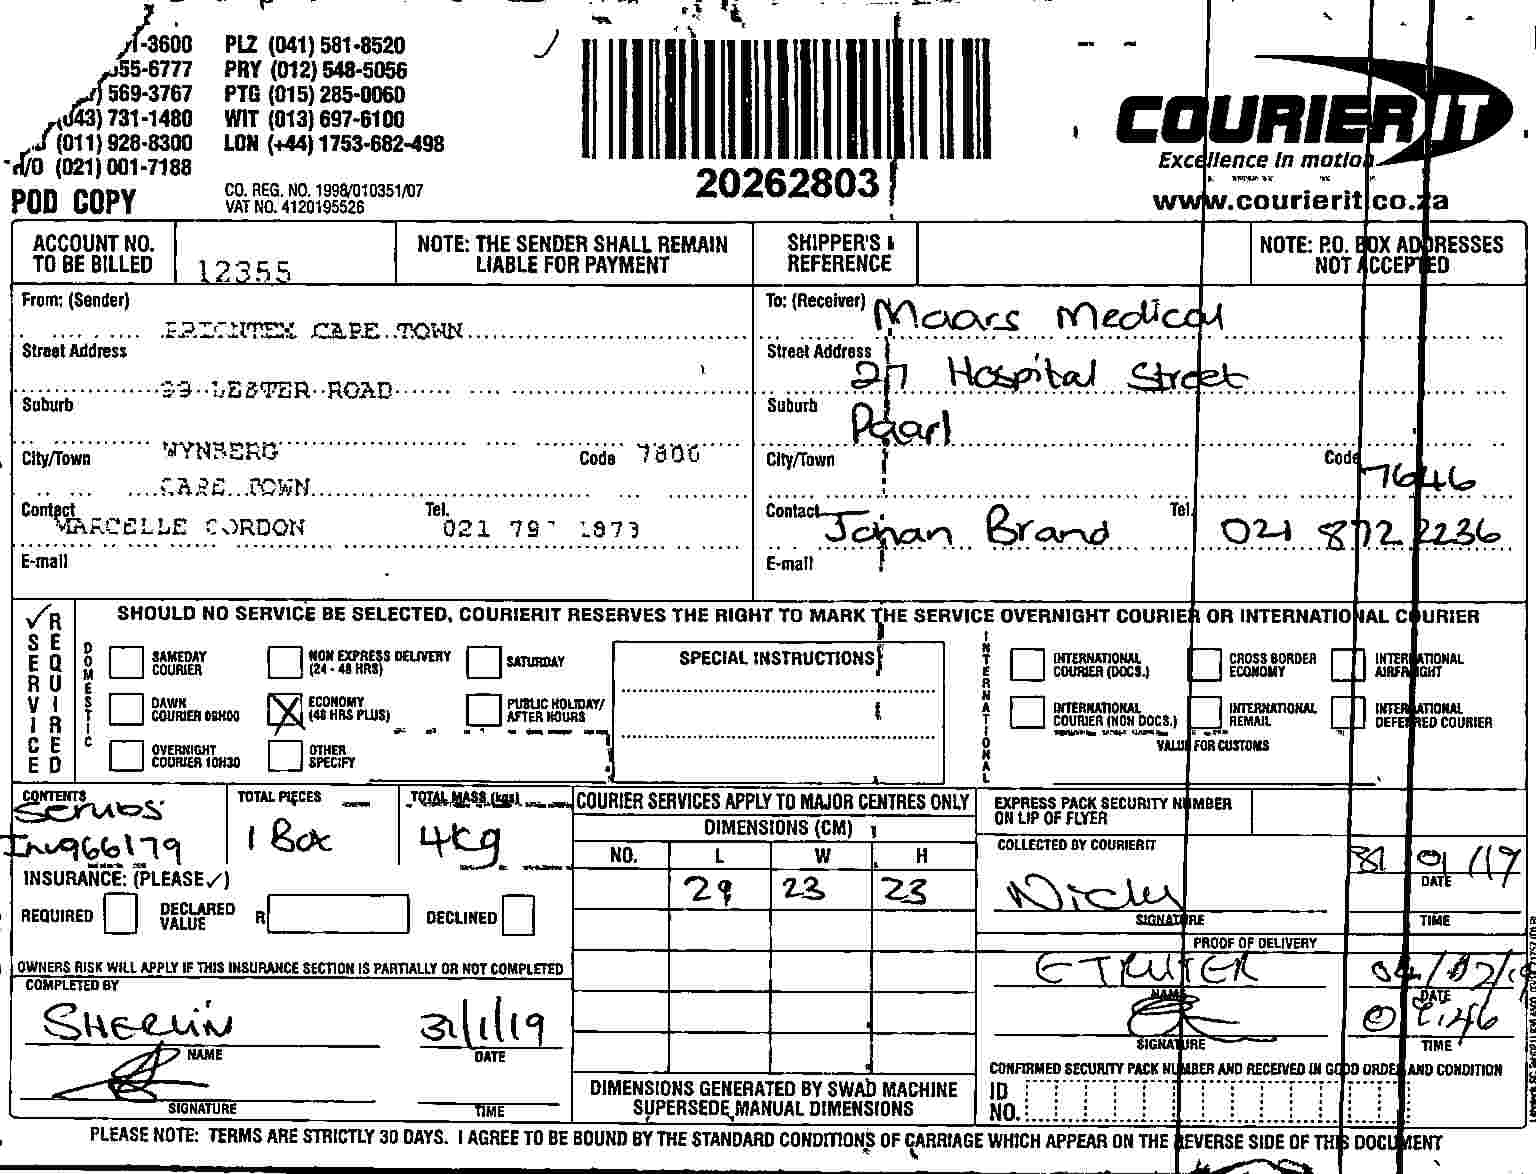 1-3600 PLZ (041) 581-8520
55-6777 PRY (012) 548-5056
569-3767 PTG (015) 285-0060
(043) 731-1480 WIT (013) 697-6100
(011) 928-8300 LON (+44) 1753-682-498
(021) 001-7188
POD COPY
CO. REG. NO. 1998/010351/07
VAT NO. 4120195526
20262803
COURIER IT
Excellence in motion
www.courierit.co.za
ACCOUNT NO. TO BE BILLED 12355
NOTE: THE SENDER SHALL REMAIN LIABLE FOR PAYMENT
SHIPPER'S REFERENCE
NOTE: P.O. BOX ADDRESSES NOT ACCEPTED
From: (Sender) CAPE TOWN
Street Address
99 LESTER ROAD
Suburb
WYNBERG
City/Town Code 7800
CAPE TOWN
Contact MARCELLE GORDON Tel. 021 797 1873
E-mail
To: (Receiver) Maars Medical
Street Address 27 Hospital Street
Suburb Paarl
City/Town Code 7646
Contact Johan Brand Tel. 021 872 2236
E-mail
✓ SERVICE REQUIRED
SHOULD NO SERVICE BE SELECTED, COURIERIT RESERVES THE RIGHT TO MARK THE SERVICE OVERNIGHT COURIER OR INTERNATIONAL COURIER
DOMESTIC
SAMEDAY COURIER
NON EXPRESS DELIVERY (24 - 48 HRS)
SATURDAY
DAWN COURIER 09H00
X ECONOMY (48 HRS PLUS)
PUBLIC HOLIDAY/ AFTER HOURS
OVERNIGHT COURIER 10H30
OTHER SPECIFY
SPECIAL INSTRUCTIONS
INTERNATIONAL
INTERNATIONAL COURIER (DOCS.)
CROSS BORDER ECONOMY
INTERNATIONAL AIRFREIGHT
INTERNATIONAL COURIER (NON DOCS.)
INTERNATIONAL REMAIL
INTERNATIONAL DEFERRED COURIER
VALUE FOR CUSTOMS
CONTENTS
Scrubs
Inv966179
TOTAL PIECES
1 Box
TOTAL MASS (kgs)
4kg
INSURANCE: (PLEASE ✓)
REQUIRED DECLARED VALUE R DECLINED
OWNERS RISK WILL APPLY IF THIS INSURANCE SECTION IS PARTIALLY OR NOT COMPLETED
COMPLETED BY
SHERLIN 31/1/19
NAME DATE
SIGNATURE TIME
COURIER SERVICES APPLY TO MAJOR CENTRES ONLY
DIMENSIONS (CM)
NO. L W H
29 23 23
DIMENSIONS GENERATED BY SWAD MACHINE
SUPERSEDE MANUAL DIMENSIONS
EXPRESS PACK SECURITY NUMBER ON LIP OF FLYER
COLLECTED BY COURIERIT
31 01/19
DATE
SIGNATURE TIME
PROOF OF DELIVERY
E TRUTER 04/02/19
NAME DATE
09:46
SIGNATURE TIME
CONFIRMED SECURITY PACK NUMBER AND RECEIVED IN GOOD ORDER AND CONDITION
ID NO.
PLEASE NOTE: TERMS ARE STRICTLY 30 DAYS. I AGREE TO BE BOUND BY THE STANDARD CONDITIONS OF CARRIAGE WHICH APPEAR ON THE REVERSE SIDE OF THIS DOCUMENT